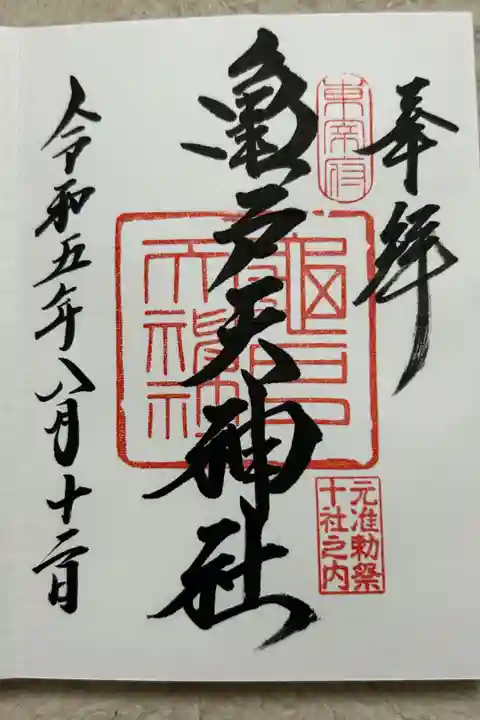 奉拝
東宰府
亀戸天神社
龜戸
天神社
元准勅祭
十社之内
令和五年八月十二日